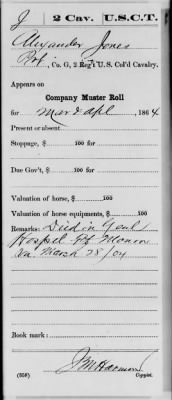 J 2 Cav. U.S.C.T.
Alexander Jones
Pvt, Co. G, 2 Reg't U.S. Col'd Cavalry.
Appears on
Company Muster Roll
for Mar & Apl, 1864
Present or absent
Stoppage, $ 100 for
Due Gov't, $ 100 for
Valuation of horse, $ 100
Valuation of horse equipments, $ 100
Remarks: Died in Genl
Hospil Ft Monroe
Va March 28/64
Book mark:
(358) Copyist.